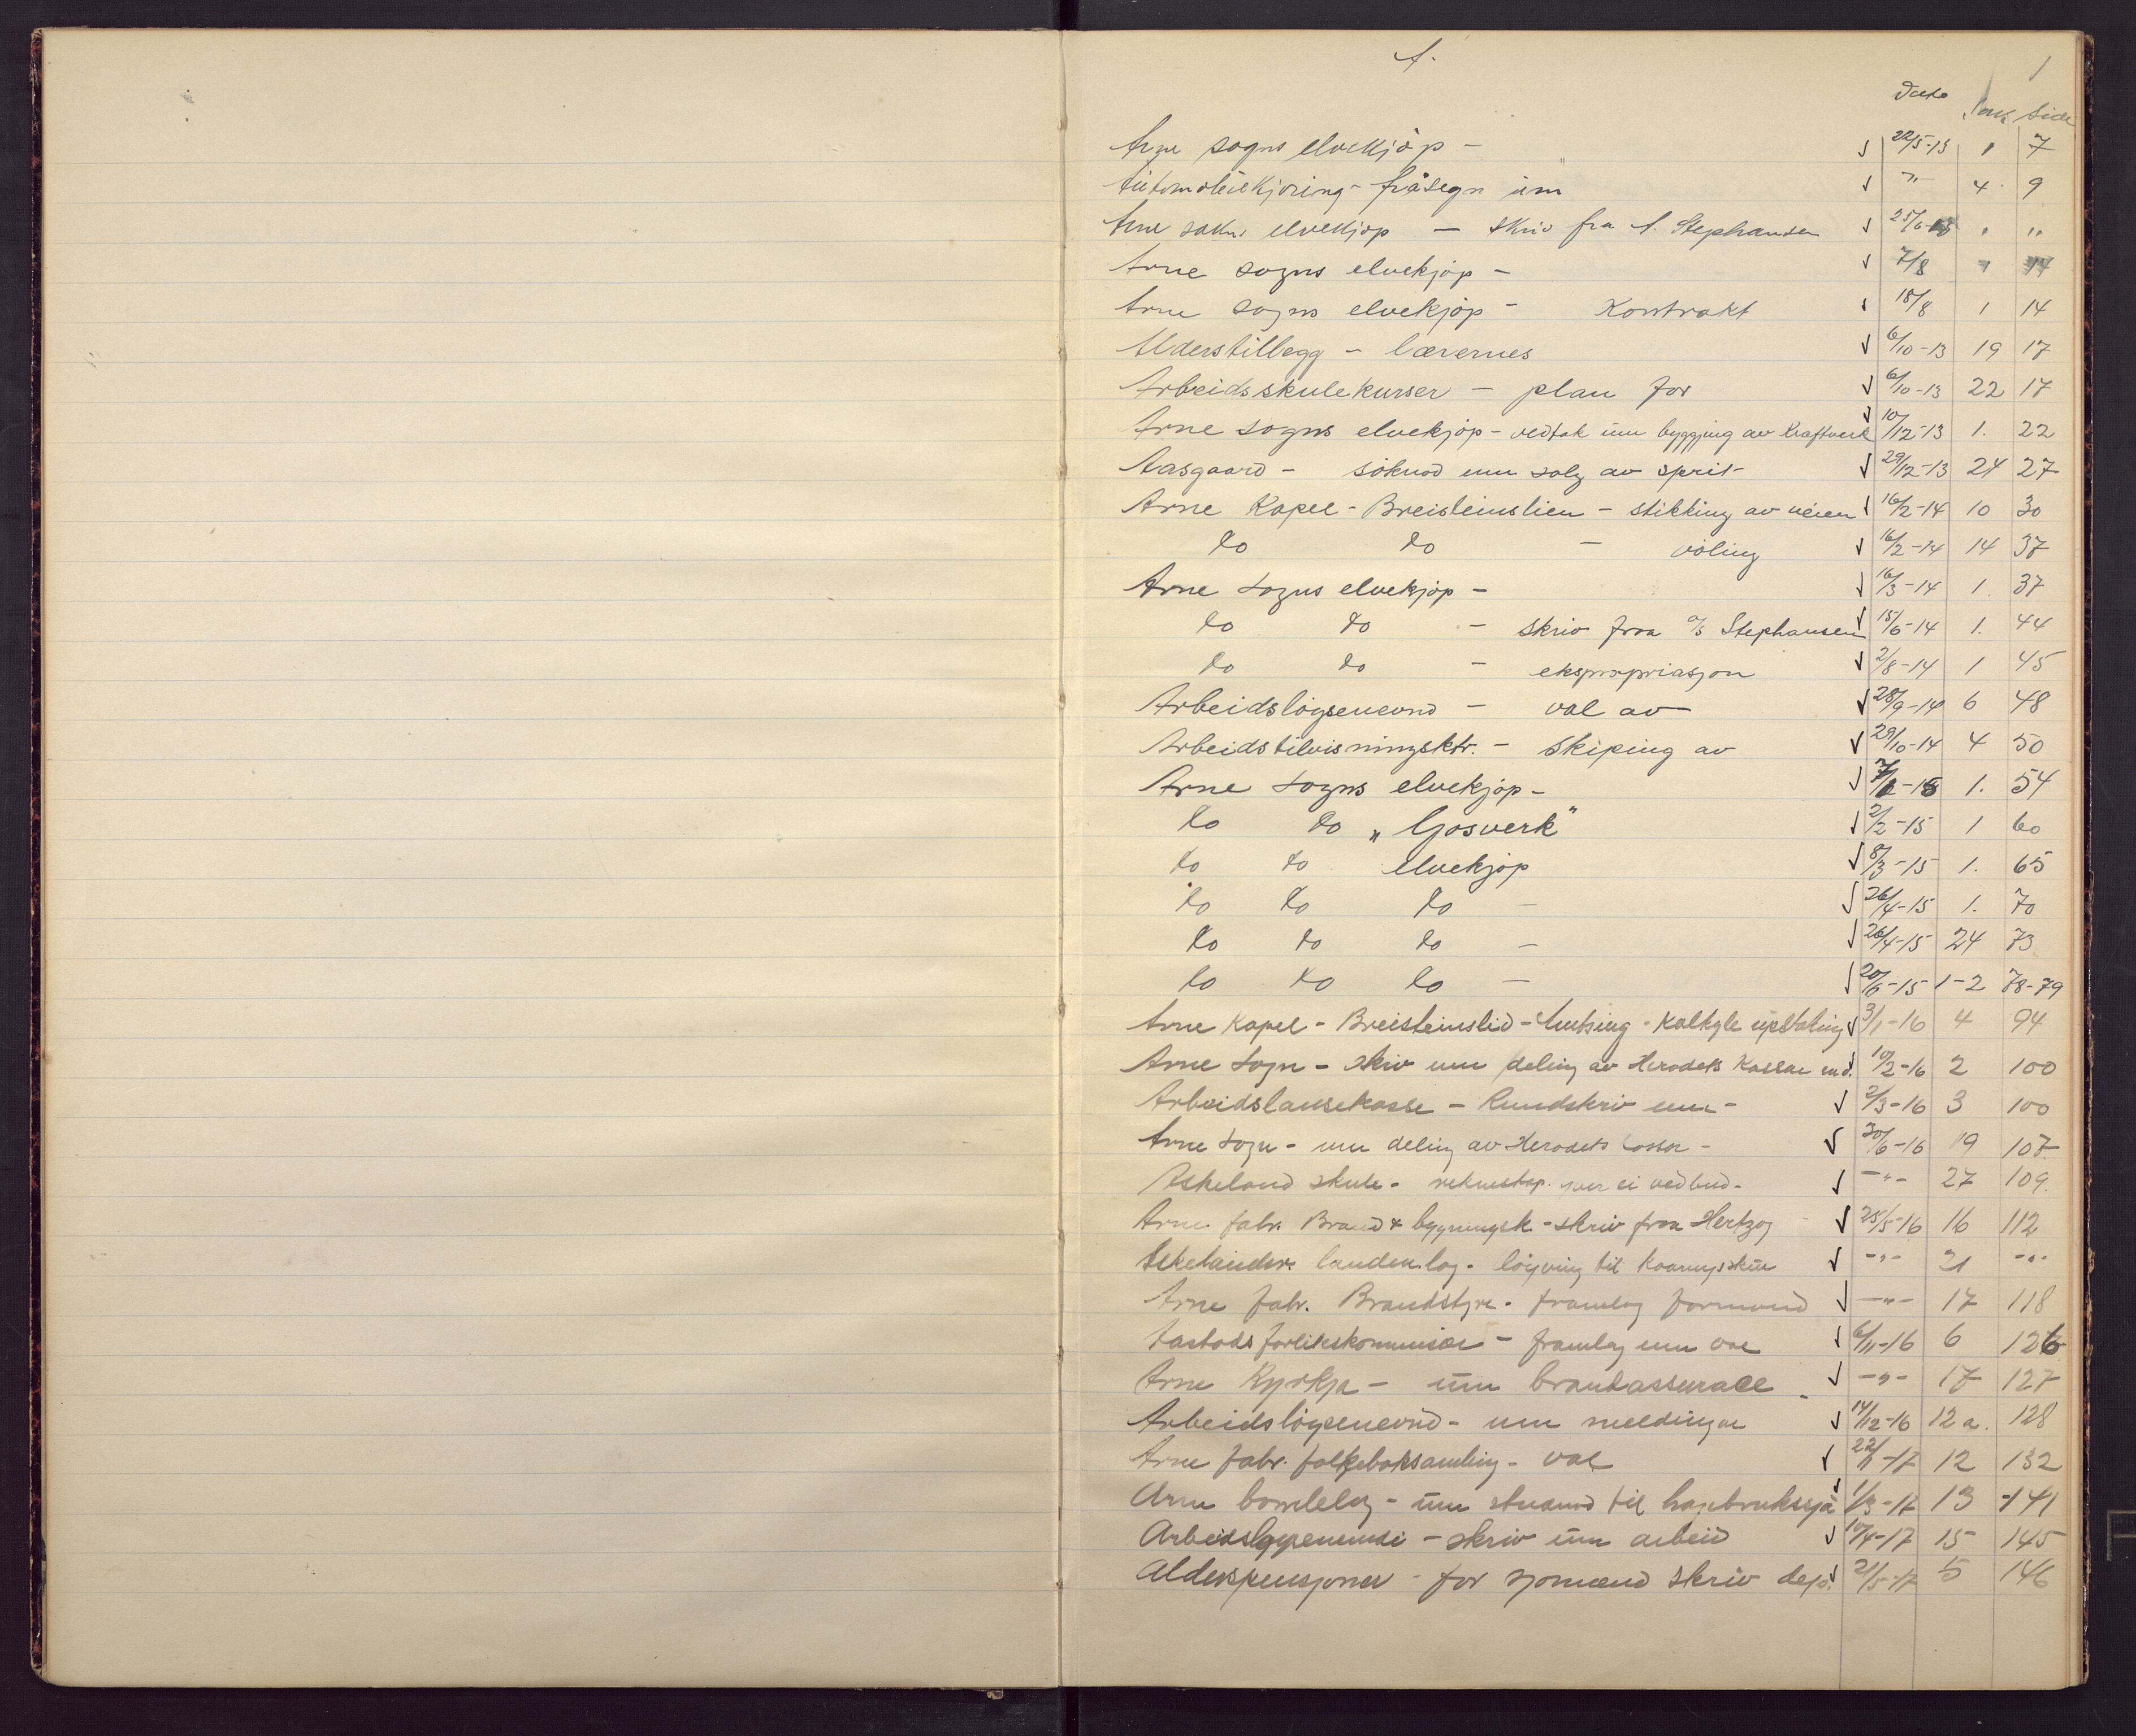 A.
1
Dato Sak Side
Arne sogns elvekjøp - √ 22/5-13 1 7
Automobilkjøring - fråsegn um √ " 4 9
Arne sokns elvekjøp - skriv fra A. Stephansen √ 25/6-13 " "
Arne sogns elvekjøp - √ 7/8 " 14
Arne sogns elvekjøp - Kontrakt √ 18/8 1 14
Alderstillegg - lærernes √ 6/10-13 19 17
Arbeidsskulekurser - plan for √ 6/10-13 22 17
Arne sogns elvekjøp - vedtak um bygging av Kraftverk √ 10/12-13 1. 22
Aasgaard - søknad um salg av sprit √ 29/12-13 24 27
Arne Kapel - Breisteinslien - stikking av veien √ 16/2-14 10 30
do do - vøling √ 16/2-14 14 37
Arne sogns elvekjøp - √ 16/3-14 1. 37
do do - skriv fraa a/s Stephansen √ 15/6-14 1. 44
do do - ekspropriasjon √ 2/8-14 1 45
Arbeidsløysenevnd - val av √ 28/9-14 6 48
Arbeidstilvisningsktr. - skiping av √ 29/10-14 4 50
Arne sogns elvekjøp - √ 1. 54
do do „Gosverk" √ 2/2-15 1 60
do do elvekjøp √ 8/3-15 1. 65
do do do - √ 26/4-15 1. 70
do do do - √ 26/4-15 24 73
do do do - √ 20/6-15 1-2 78-79
Arne Kapel - Breisteinslid - - Kalkyle √ 3/1-16 4 94
Arne sogn - skriv um deling av Heradets Kassar m.d. √ 10/2-16 2 100
Arbeidslausekasse - Rundskriv um - √ 2/3-16 3 100
Arne sogn - um deling av Heradets kassar - √ 30/6-16 19 107
Askeland skule - rekneskap yver ei vedbud - √ -"- 27 109.
Arne fabr. Brand & bygningsk. - skriv fraa Hertzog √ 25/5-16 16 112
- løyving til √ -"- 21 -"-
Arne fabr. Brandstyre - framlag formand √ -"- 17 118
Aastads forlikskommisær - framlag um val √ 6/11-16 6 126
Arne Kyrkja - um brandassurace √ -"- 17 127
Arbeidsløysenevnd - um meldingar √ 14/12-16 12 a. 128
Arne fabr. folkeboksamling - val √ 22/1-17 12 132
Arne bondelag - um stuanad til hagebrukssjå √ 1/3-17 13 141
Arbeidsløysenemdi - skriv um arbeid √ 10/4-17 15 145
Alderspensjoner - for sjømænd skriv dep. √ 21/5-17 5 146